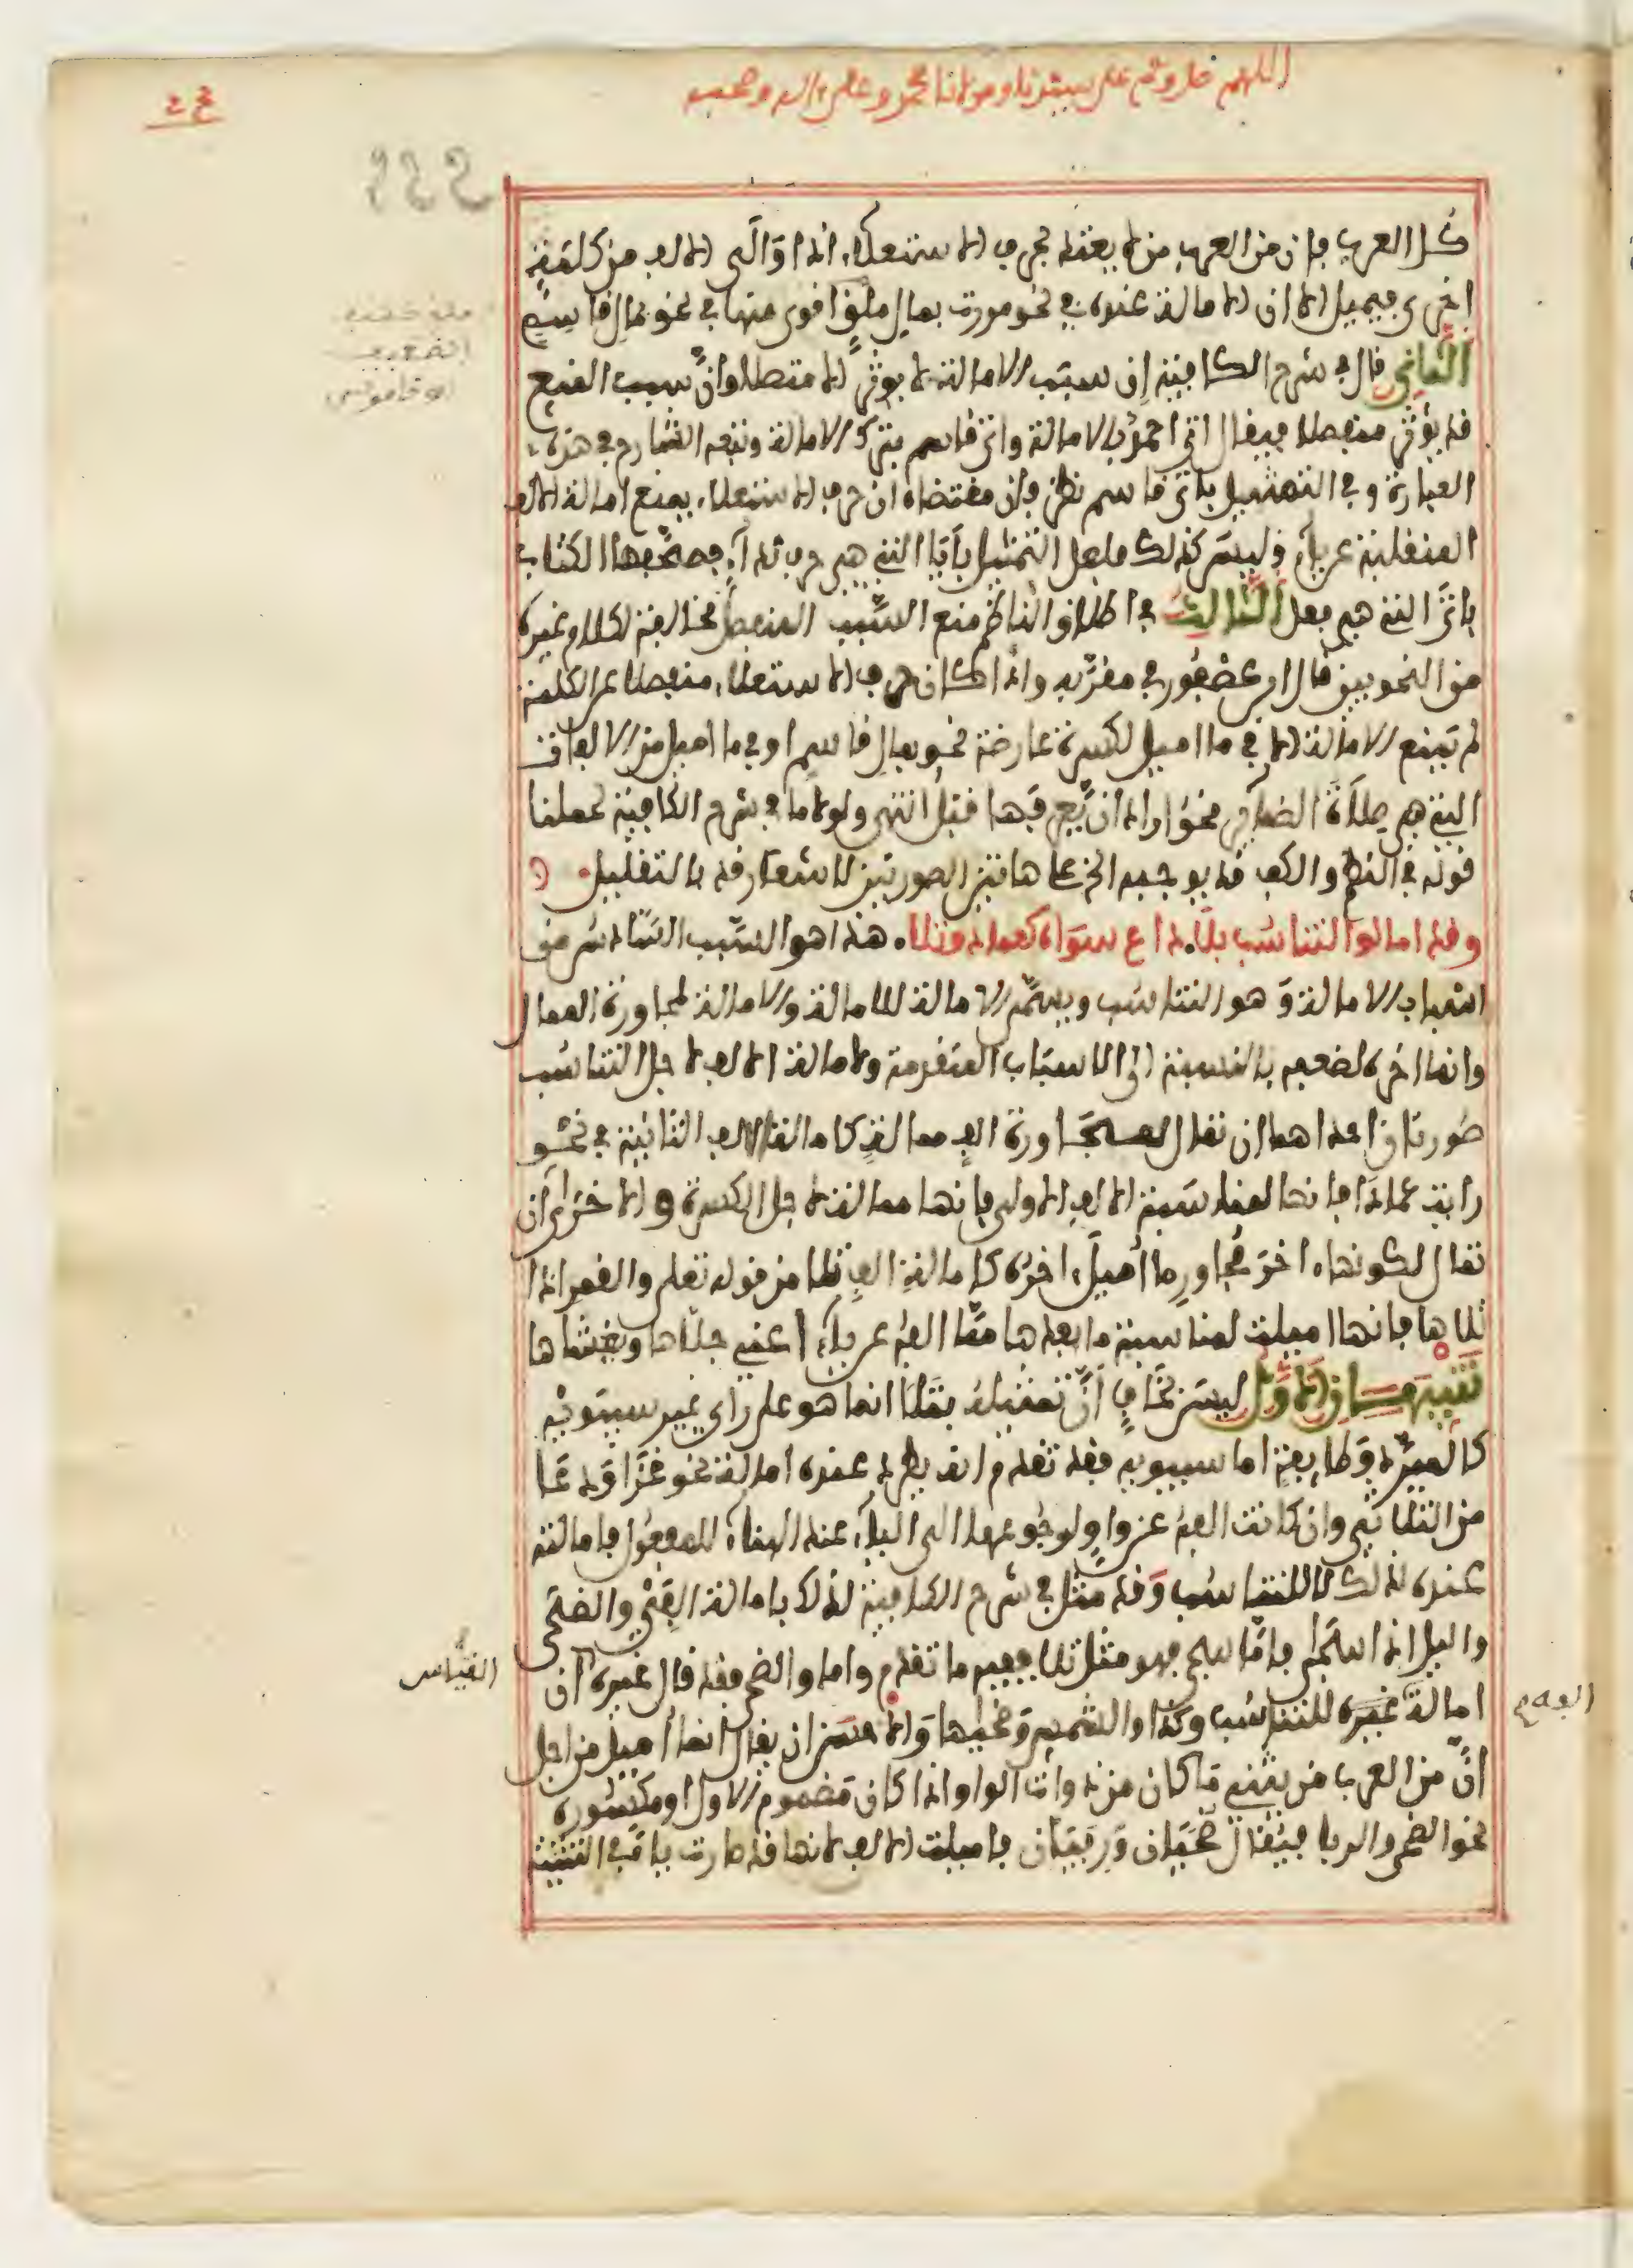 اللهم صل وسلم على سيدنا ومولانا محمد وعلى اله وصحبه
كل العرب فان من العرب من لا يعتد بحرف الاستعلاء اذا ولي الالف من كلمة
اخرى فيميل الا ان الامالة عنده في نحو مررت بمال ملق اقوى منها في نحو بمال قاسم
الثاني قال في شرح الكافية ان سبب الامالة لا يوثر الا متصلا وان سبب المنع
قد يوثر منفصلا فيقال اتى احمد بالامالة واتى قاسم بترك الامالة وتبعه الشارح في هذه
العبارة وفي التمثيل باتى قاسم نظر فان مقتضاه ان حرف الاستعلاء يمنع امالة الالف
المنقلبة عن ياء وليس كذلك فلعل التمثيل بايا التي هي حرف نداء فصحفها الكتاب
باتى التي هي فعل الثالث في اطلاق الناظم منع السبب المنفصل مخالفة لكلام غيره
من النحويين قال ابن عصفور في مقربه واذا كان حرف الاستعلاء منفصلا عن الكلمة
لم يمنع الامالة الا في ما اميل لكسرة عارضة نحو بمال قاسم او في ما اميل من الالفات
التي هي صلاة الضمائر نحو اراد ان يعرفها قبل انتهى ولولا ما في شرح الكافية لحملنا
قوله في النظم والكف قد يوجبه الخ على هاتين الصورتين لاشعار قد بالتقليل
وقد امالوا لتناسب بلا داع سواه كعمادا وتلا هذا هو السبب السادس من
اسباب الامالة وهو التناسب ويسمى الامالة للامالة والامالة لمجاورة الممال
وانما اخره لضعفه بالنسبة الى الاسباب المتقدمة ولامالة الالف لاجل التناسب
صورتان احداهما ان تمال لمجاورة الف ممالة كامالة الالف الثانية في نحو
رايت عمادا فانها لمناسبة الالف الاولى فانها ممالة لاجل الكسرة والاخرى ان
تمال لكونها اخر مجاور ما اميل اخره كامالة الف تلا من قوله تعلى والقمر اذا
تلاها فانها اميلت لمناسبة ما بعدها مما الفه عن ياء اعني جلاها ويغشاها
تنبيهان الاول ليس بخاف ان تمثيله بتلا انما هو على راي غير سيبويه
كالمبرد وطايفة اما سيبويه فقد تقدم انه يطرد عنده امالة نحو غزا ودعا
من الثلاثي وان كانت الفه عن واو لرجوعها الى الياء عند البناء للمفعول فامالته
عنده لذلك لا للتناسب وقد مثل في شرح الكافية لذلك بامالة الفي والضحى
واليل اذا سجى فاما سجى فهو مثل تلا ففيه ما تقدم واما والضحى فقد قال غيره ان
امالة غيره للتناسب وكذا والشمس وضحيها والاحسن ان يقال انما اميل من اجل
ان من العرب من يثني ما كان من ذوات الواو اذا كان مضموم الاول او مكسوره
نحو الضحى والربا فيقال ضحيان وربيان فاميلت الالف لانها قد صارت ياء في التثنية
القياس